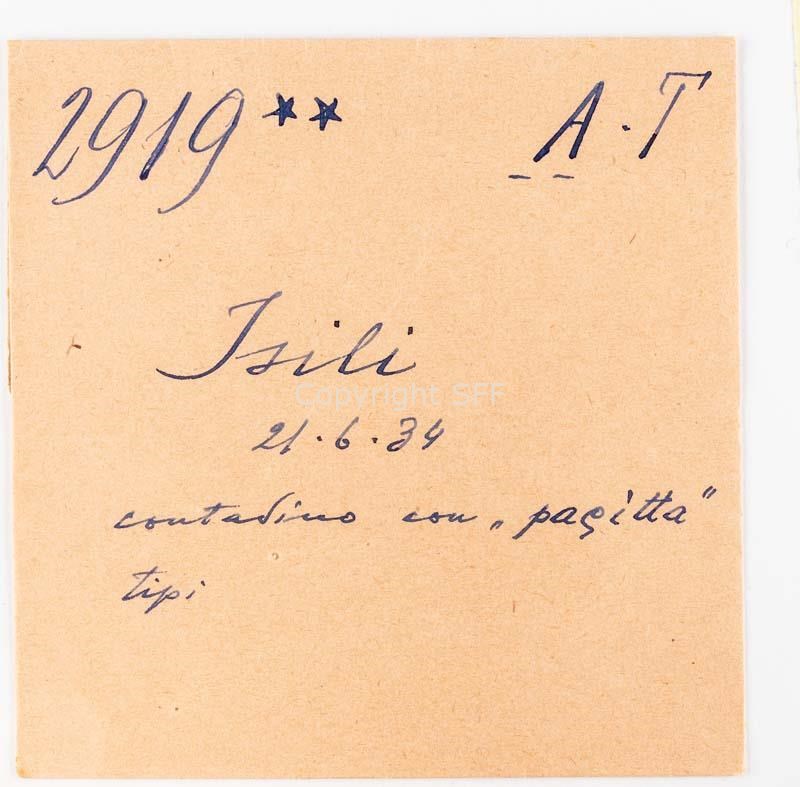 2919** A.T
Isili
Copyright SFF
21.6.34
contadino con „paçìtta"
tipi